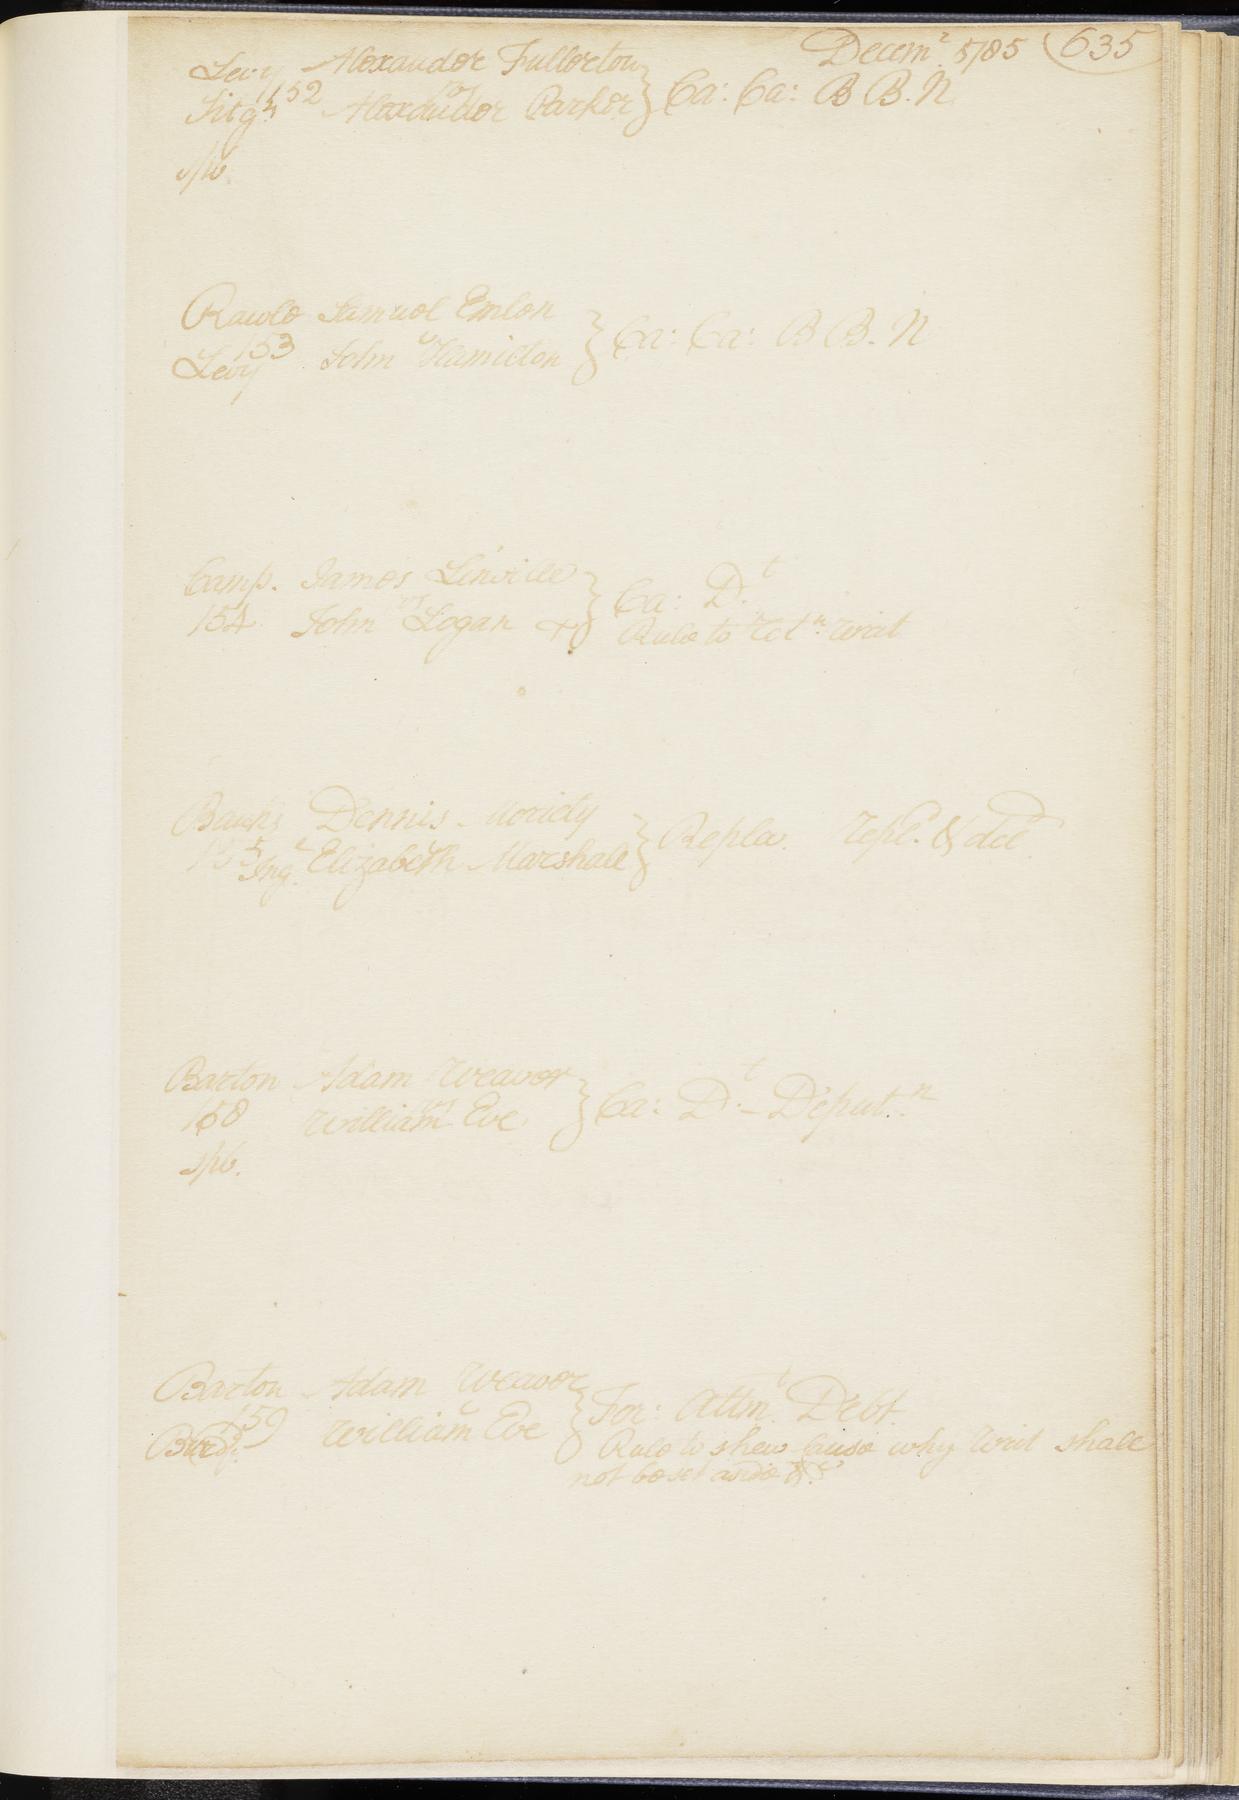 Decemr. 5/85 635
Levy Alexander Fullerton } Ca: Ca: B B. N
152 vs
Alexander Parker
spb.
Rawle Samuel Emlen } Ca: Ca: B B. N
153 v
Levy John Hamilton
Camp. James Linville } Ca: Dt.
154 vs
John Logan Rule to retn. writ
Banks Dennis Moriety } Repla. repl. & del
155 Ing. Elizabeth Marshall
Barton Adam Weaver } Ca: Dt. - Deputn.
158 vs
William Eve
spb.
Barton Adam Weaver } For: Attmt. Debt
159 v
William Eve Rule to shew Cause why Writ shall
not be set aside &c